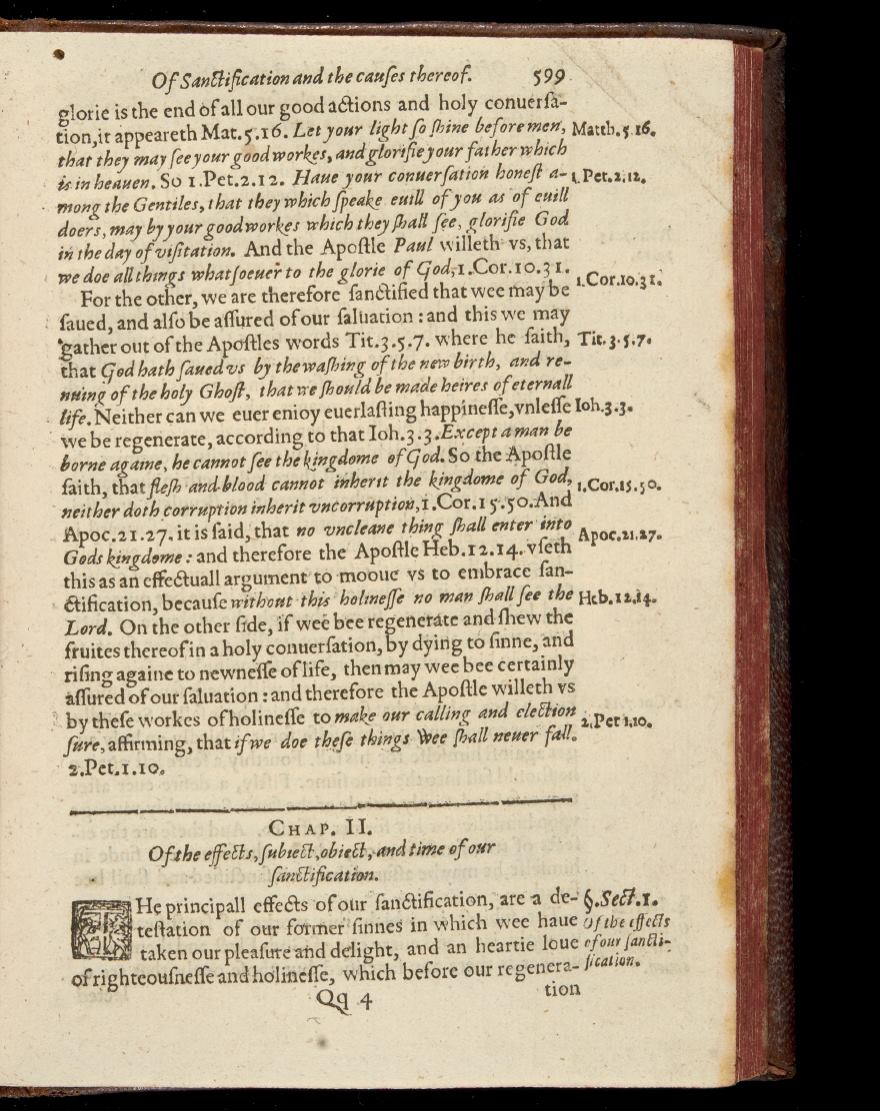 Of Sanctification and the cauſes thereof. 599
glorie is the end of all our good actions and holy conuerſa-
tion, it appeareth Mat.5.16. Let your light ſo ſhine before men, Matth.5.16.
that they may ſee your good workes, and glorifie your father which
is in heauen. So 1.Pet.2.12. Haue your conuerſation honeſt a- 1.Pet.2.12.
mong the Gentiles, that they which ſpeake euill of you as of euill
doers, may by your good workes which they ſhall ſee, glorifie God
in the day of viſitation. And the Apoſtle Paul willeth vs, that
we doe all things whatſoeuer to the glorie of God, 1.Cor.10.31. 1.Cor.10.31.
For the other, we are therefore ſanctified that wee may be
ſaued, and alſo be aſſured of our ſaluation : and this we may
gather out of the Apoſtles words Tit.3.5.7. where he ſaith, Tit.3.5.7.
that God hath ſaued vs by the waſhing of the new birth, and re-
nuing of the holy Ghoſt, that we ſhould be made heires of eternall
life. Neither can we euer enioy euerlaſting happineſſe, vnleſſe Ioh.3.3.
we be regenerate, according to that Ioh.3.3. Except a man be
borne againe, he cannot ſee the kingdome of God. So the Apoſtle
ſaith, that fleſh and blood cannot inherit the kingdome of God, 1.Cor.15.50.
neither doth corruption inherit vncorruption, 1.Cor.15.50. And
Apoc.21.27. it is ſaid, that no vncleane thing ſhall enter into Apoc.21.27.
Gods kingdome : and therefore the Apoſtle Heb.12.14. vſeth
this as an effectuall argument to mooue vs to embrace ſan-
ctification, becauſe without this holineſſe no man ſhall ſee the Heb.12.14.
Lord. On the other ſide, if wee bee regenerate and ſhew the
fruites thereof in a holy conuerſation, by dying to ſinne, and
riſing againe to newneſſe of life, then may wee bee certainly
aſſured of our ſaluation : and therefore the Apoſtle willeth vs
by theſe workes of holineſſe to make our calling and election 2.Pet 1.10.
ſure, affirming, that if we doe theſe things wee ſhall neuer fall.
2.Pet.1.10.
CHAP. II.
Of the effects, ſubiect, obiect, and time of our
ſanctification.
THe principall effects of our ſanctification, are a de- §.Sect.1.
teſtation of our former ſinnes in which wee haue Of the effects
taken our pleaſure and delight, and an heartie loue of our ſancti-
of righteouſneſſe and holineſſe, which before our regenera- fication.
Qq 4 tion